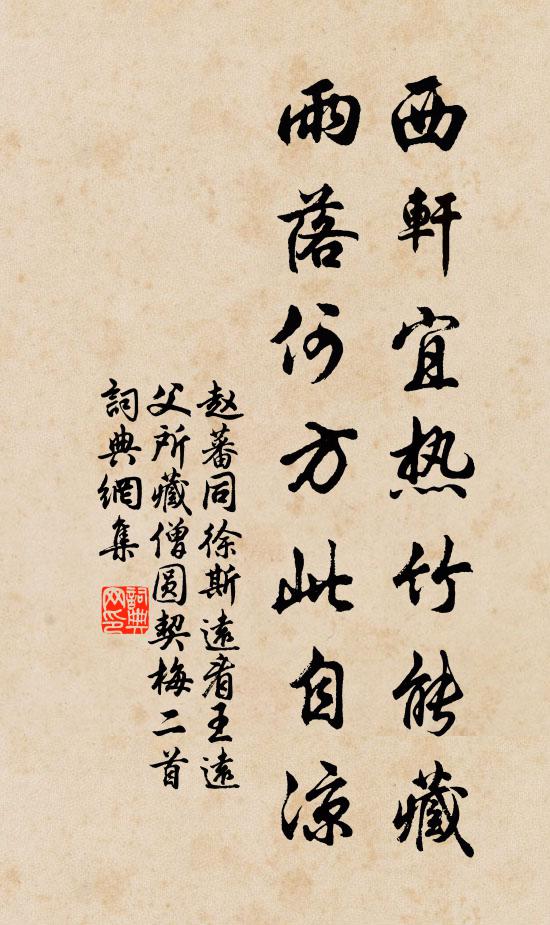 西軒宜热竹能藏
雨落何方此自凉
赵蕃同徐斯遠看王遠
父所藏僧圆契梅二首
詞典網集
詞典网印